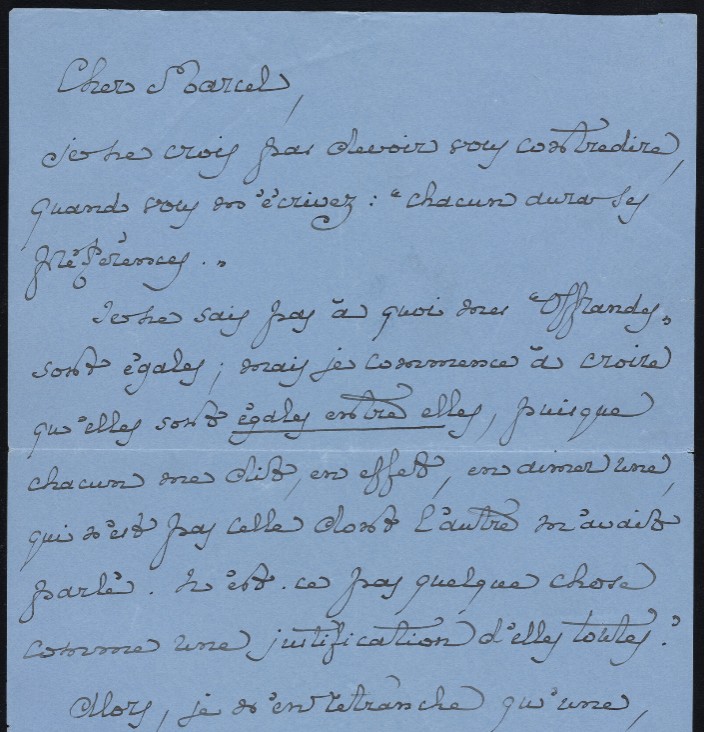 Cher Marcel,
je ne crois pas devoir vous contredire,
quand vous m'écrivez : "chacun aura ses
préférences."
Je ne sais pas à quoi mes "Offrandes"
sont égales ; mais je commence à croire
qu'elles sont égales entre elles, puisque
chacun me dit, en effet, en aimer une,
qui n'est pas celle dont l'autre m'avait
parlé. N'est-ce pas quelque chose
comme une justification d'elles toutes ?
Alors, je n'en retranche qu'une,